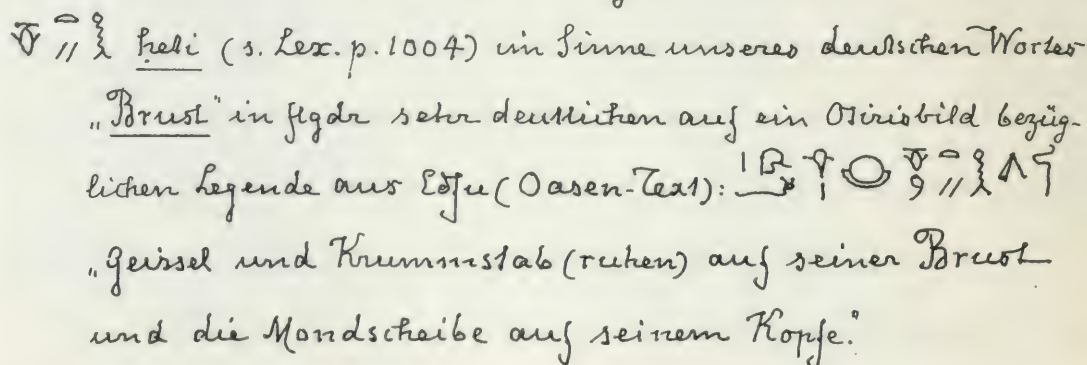 ḥeti (s. Lex. p. 1004) im Sinne unseres deutschen Wortes
„Brust“ in flgdr sehr deutlichen auf ein Osirisbild bezüg-
lichen Legende aus Edfu (Oasen-Text):
„Geissel und Krummstab (ruhen) auf seiner Brust
und die Mondscheibe auf seinem Kopfe.“